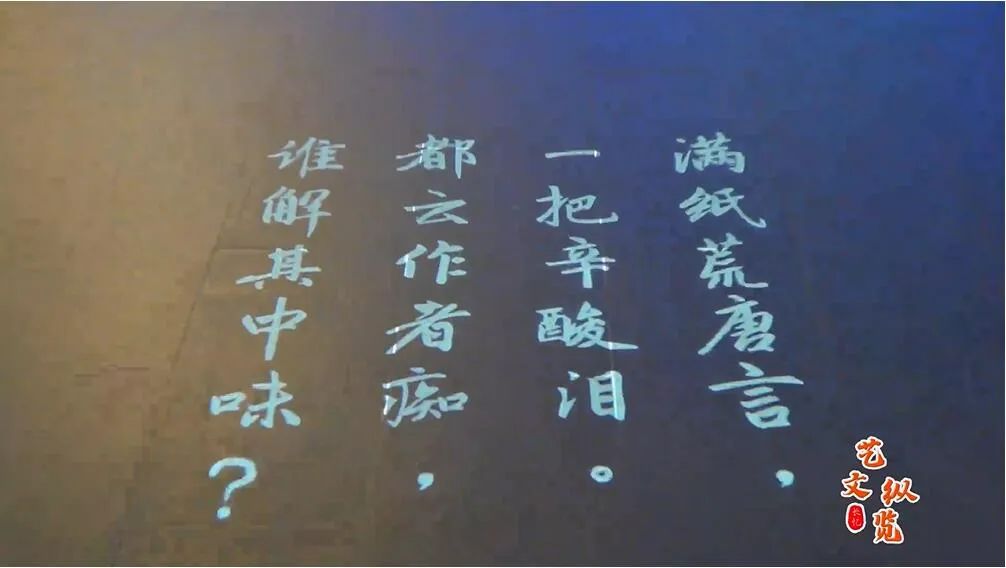 满纸荒唐言，
一把辛酸泪。
都云作者痴，
谁解其中味？
艺文纵览